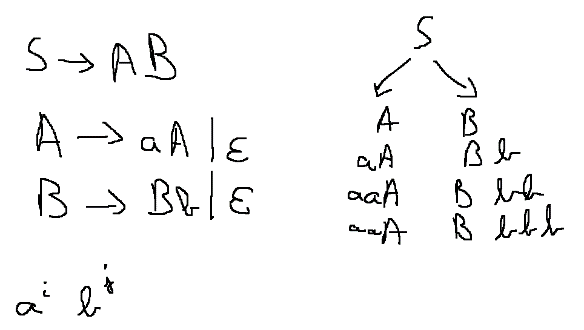 S → AB
A → aA | ε
B → Bb | ε
aⁱ bʲ
S
A B
aA Bb
aaA Bbb
aaA Bbbb